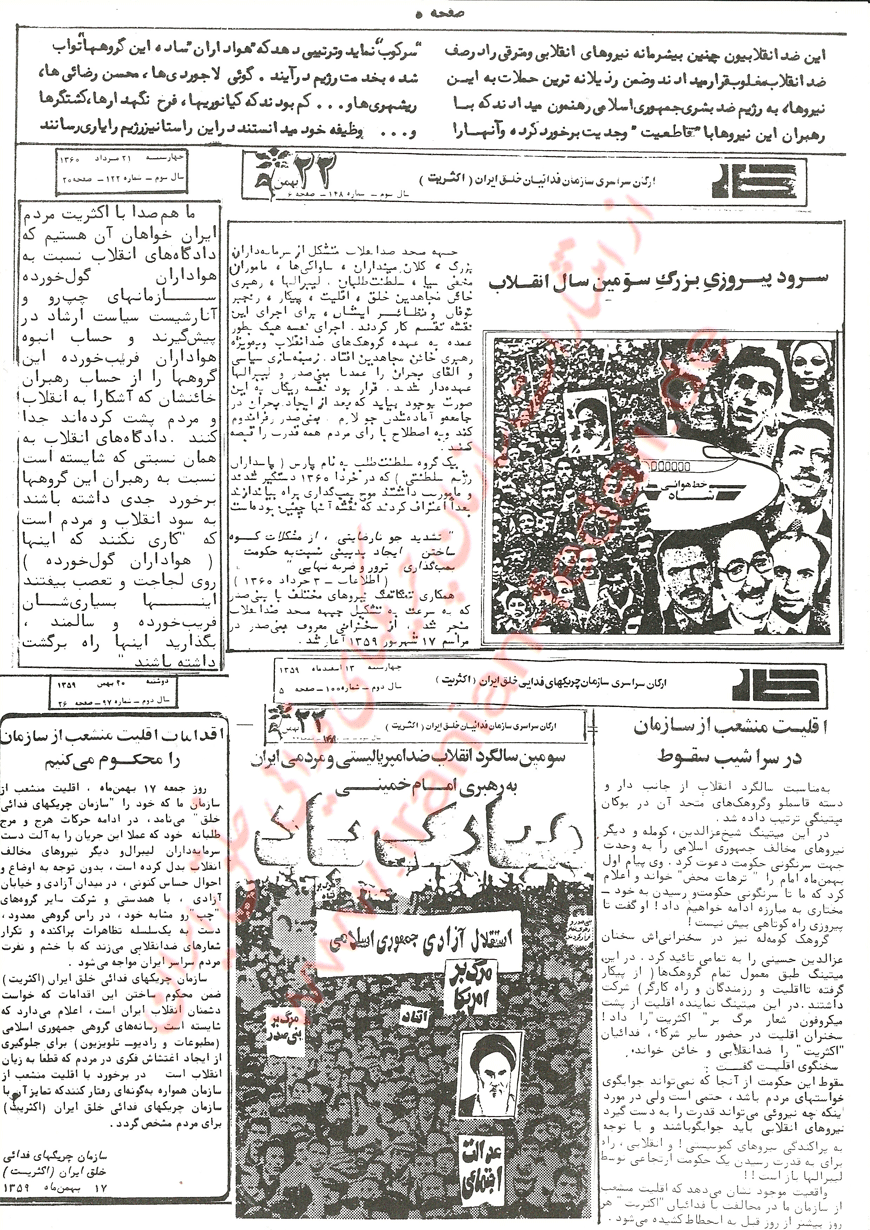 صفحه ۵
این ضد انقلابیون چنین بیشرمانه نیروهای انقلابی ومترقی را درصف
ضد انقلاب مغلوب قرار میدادند وضمن رذیلانه ترین حملات به ایـــن
نیروها، به رژیم ضد بشری جمهوری اسلامی رهنمون میدادند که بـــا
رهبران این نیروها با "قاطعیت" وجدیت برخورد کرده وآنهـــا را
"سرکوب" نماید وترتیبی دهد که "هواداران" ساده این گروهها "تواب
شده، بخدمت رژیم درآیند. گوئی لاجوردی‌ها، محسن رضائی ها،
ریشهری‌ها و... کم بودند که کیانوریها، فرخ نگهدارها، کشتگرها
و... وظیفه خود میدانستند در این راستا نیز رژیم را یاری رسانند
چهارشنبه ۲۱ مرداد ۱۳۶۰
سال سوم – شماره ۱۲۲ – صفحه ۲۵
کار
ارگان سراسری سازمان فدائیان خلق ایران (اکثریت)
۲۲ بهمن
سال سوم – شماره ۱۴۸ – صفحه ۶
ما هم‌صدا با اکثریت مردم
ایران خواهان آن هستیم که
دادگاه‌های انقلاب نسبت به
هواداران گول‌خورده
ســـازمانهای چپ‌رو و
آنارشیست سیاست ارشاد در
پیش‌گیرند و حساب انبوه
هواداران فریب‌خورده این
گروهها را از حساب رهبران
خائنشان که آشکارا به انقلاب
و مردم پشت کرده‌اند جدا
کنند. دادگاه‌های انقلاب به
همان نسبتی که شایسته است
نسبت به رهبران این گروهها
برخورد جدی داشته باشند
به سود انقلاب و مردم است
که "کاری نکنند که اینها
(هواداران گول‌خورده)
روی لجاجت و تعصب بیفتند
اینـــها بسیاری‌شـــان
فریب‌خورده و سالمند،
بگذارید اینها راه برگشت
داشته باشند"
سرود پیــروزیِ بزرگِ سوّمین سال انقـلاب
جبهه متحد ضدانقلاب متشکل از سرمایه‌داران
بزرگ، کلان مینداران، ساواکی‌ها، ماموران
مخفی سیا، سلطنت‌طلبان، لیبرالها، رهبری
خائن مجاهدین خلق، اقلیت، پیکار، رنجبر
توفان و نظائر ایشان، برای اجرای این
نقشه تقسیم کار کردند. اجرای نقشه هیک بطور
عمده به عهده گروهک‌های ضدانقلاب وبه‌ویژه
رهبری خائن مجاهدین افتاد. زمینه‌سازی سیاسی
و القای بحران را عمدتا بنی‌صدر و لیبرالها
عهده‌دار شدند. قرار بود نقشه ریگان به این
صورت بوجود بیاید که بعد از ایجاد بحران در
جامعه و آماده‌شدن جو لازم، بنی‌صدر رفراندوم
کند و به اصطلاح با رای مردم همه قدرت را قبضه
کند.
یک گروه سلطنت‌طلب به نام پارس (پاسداران
رژیم سلطنتی) که در خرداد ۱۳۶۰ دستگیر شدند
و ماموریت داشتند موج بمب‌گذاری براه بیاندازند
بعدا اعتراف کردند که نقشه آنها چنین بوده‌است
"تشدید جو نارضایتی، از مشکلات کوه
ساختن، ایجاد بدبینی نسبت به حکومت،
بمب‌گذاری، ترور و ضربه نهایی"
(اطلاعات – ۳ خرداد ۱۳۶۰)
همکاری تنگاتنگ نیروهای مختلف با بنی‌صدر
که به سرعت به تشکیل جبهه متحد ضدانقلاب
منجر شد، از سخنرانی معروف بنی‌صدر در
مراسم ۱۷ شهریور ۱۳۵۹ آغاز شد.
خط هوائی
شاه
کار
ارگان سراسری سازمان چریکهای فدایی خلق ایران (اکثریت)
چهارشنبه ۱۳ اسفند ماه ۱۳۵۹
سال دوم – شماره ۱۰۰ – صفحه ۵
دوشنبه ۲۰ بهمن ۱۳۵۹
سال دوم – شماره ۹۷ – صفحه ۲۶
اقدامات اقلیت منشعب از سازمان
را محکوم می‌کنیم
روز جمعه ۱۷ بهمن‌ماه، اقلیت منشعب از
سازمان ما که خود را "سازمان چریکهای فدائی
خلق" می‌نامد، در ادامه حرکات هرج و مرج
طلبانه خود که عملا این جریان را به آلت دست
سرمایه‌داران لیبرال و دیگر نیروهای مخالف
انقلاب بدل کرده است، بدون توجه به اوضاع و
احوال حساس کنونی، در میدان آزادی و خیابان
آزادی، با همدستی و شرکت سایر گروه‌های
"چپ"رو مشابه خود، در راس گروهی معدود،
دست به یک‌سلسله تظاهرات پراکنده و تکرار
شعارهای ضدانقلابی می‌زند که با خشم و نفرت
مردم سراسر ایران مواجه می‌شود.
سازمان چریکهای فدائی خلق ایران (اکثریت)
ضمن محکوم ساختن این اقدامات که خواست
دشمنان انقلاب ایران است، اعلام می‌دارد که
شایسته است رسانه‌های گروهی جمهوری اسلامی
(مطبوعات و رادیو-تلویزیون) برای جلوگیری
از ایجاد اغتشاش فکری در مردم که قطعا به زیان
انقلاب است، در برخورد با اقلیت منشعب از
سازمان همواره به‌گونه‌ای رفتار کنند که تمایز آن با
سازمان چریکهای فدائی خلق ایران (اکثریت)
برای مردم مشخص گردد.
سازمان چریکهای فدائی
خلق ایران (اکثریت)
۱۷ بهمن‌ماه ۱۳۵۹
ارگان سراسری سازمان فدائیان خلق ایران (اکثریت)
۲۲ بهمن
سومین سالگرد انقلاب ضدامپریالیستی و مردمی ایران
به رهبری امـام خمینـی
مبارک باد
استقلال آزادی جمهوری اسلامی
مرگ بر
آمریکا
اتحاد
مرگ بر
بنی صدر
عدالت
اجتماعی
اقلیت منشعب از سازمان
در سراشیب سقوط
به‌مناسبت سالگرد انقلاب از جانب دار و
دسته قاسملو و گروهک‌های متحد آن در بوکان
میتینگی ترتیب داده شد.
در این میتینگ شیخ عزالدین، کومله و دیگر
نیروهای مخالف جمهوری اسلامی را به وحدت
جهت سرنگونی حکومت دعوت کرد. وی پیام اول
بهمن‌ماه امام را "ترهات محض" خواند و اعلام
کرد که ما تا سرنگونی حکومت و رسیدن به خود –
مختاری به مبارزه ادامه خواهیم داد! او گفت تا
پیروزی راه کوتاهی بیش نیست!
گروهک کومله نیز در سخنرانی‌اش سخنان
عزالدین حسینی را به تمامی تائید کرد. در این
میتینگ طبق معمول تمام گروهک‌ها (از پیکار
گرفته تا اقلیت و رزمندگان و راه کارگر) شرکت
داشتند. در این میتینگ نماینده اقلیت از پشت
میکروفون شعار مرگ بر "اکثریت" را داد!
سخنران اقلیت در حضور سایر شرکاء، فدائیان
"اکثریت" را ضدانقلابی و خائن خواند،
سخنگوی اقلیت گفت:
سقوط این حکومت از آنجا که نمی‌تواند جوابگوی
خواستهای مردم باشد، حتمی است ولی در مورد
اینکه چه نیروئی می‌تواند قدرت را به دست گیرد
نیروهای انقلابی باید جوابگو باشند و با توجه
به پراکندگی نیروهای کمونیستی! و انقلابی، راه
برای به قدرت رسیدن یک حکومت ارتجاعی توسط
لیبرالها باز است!!
واقعیت موجود نشان می‌دهد که اقلیت منشعب
از سازمان ما در مخالفت با فدائیان "اکثریت" هر
روز بیشتر از روز قبل به انحطاط کشیده می‌شود.
از انتشارات سازمان چریکهای فدائی خلق ایران
www.iranian-fedaii.de